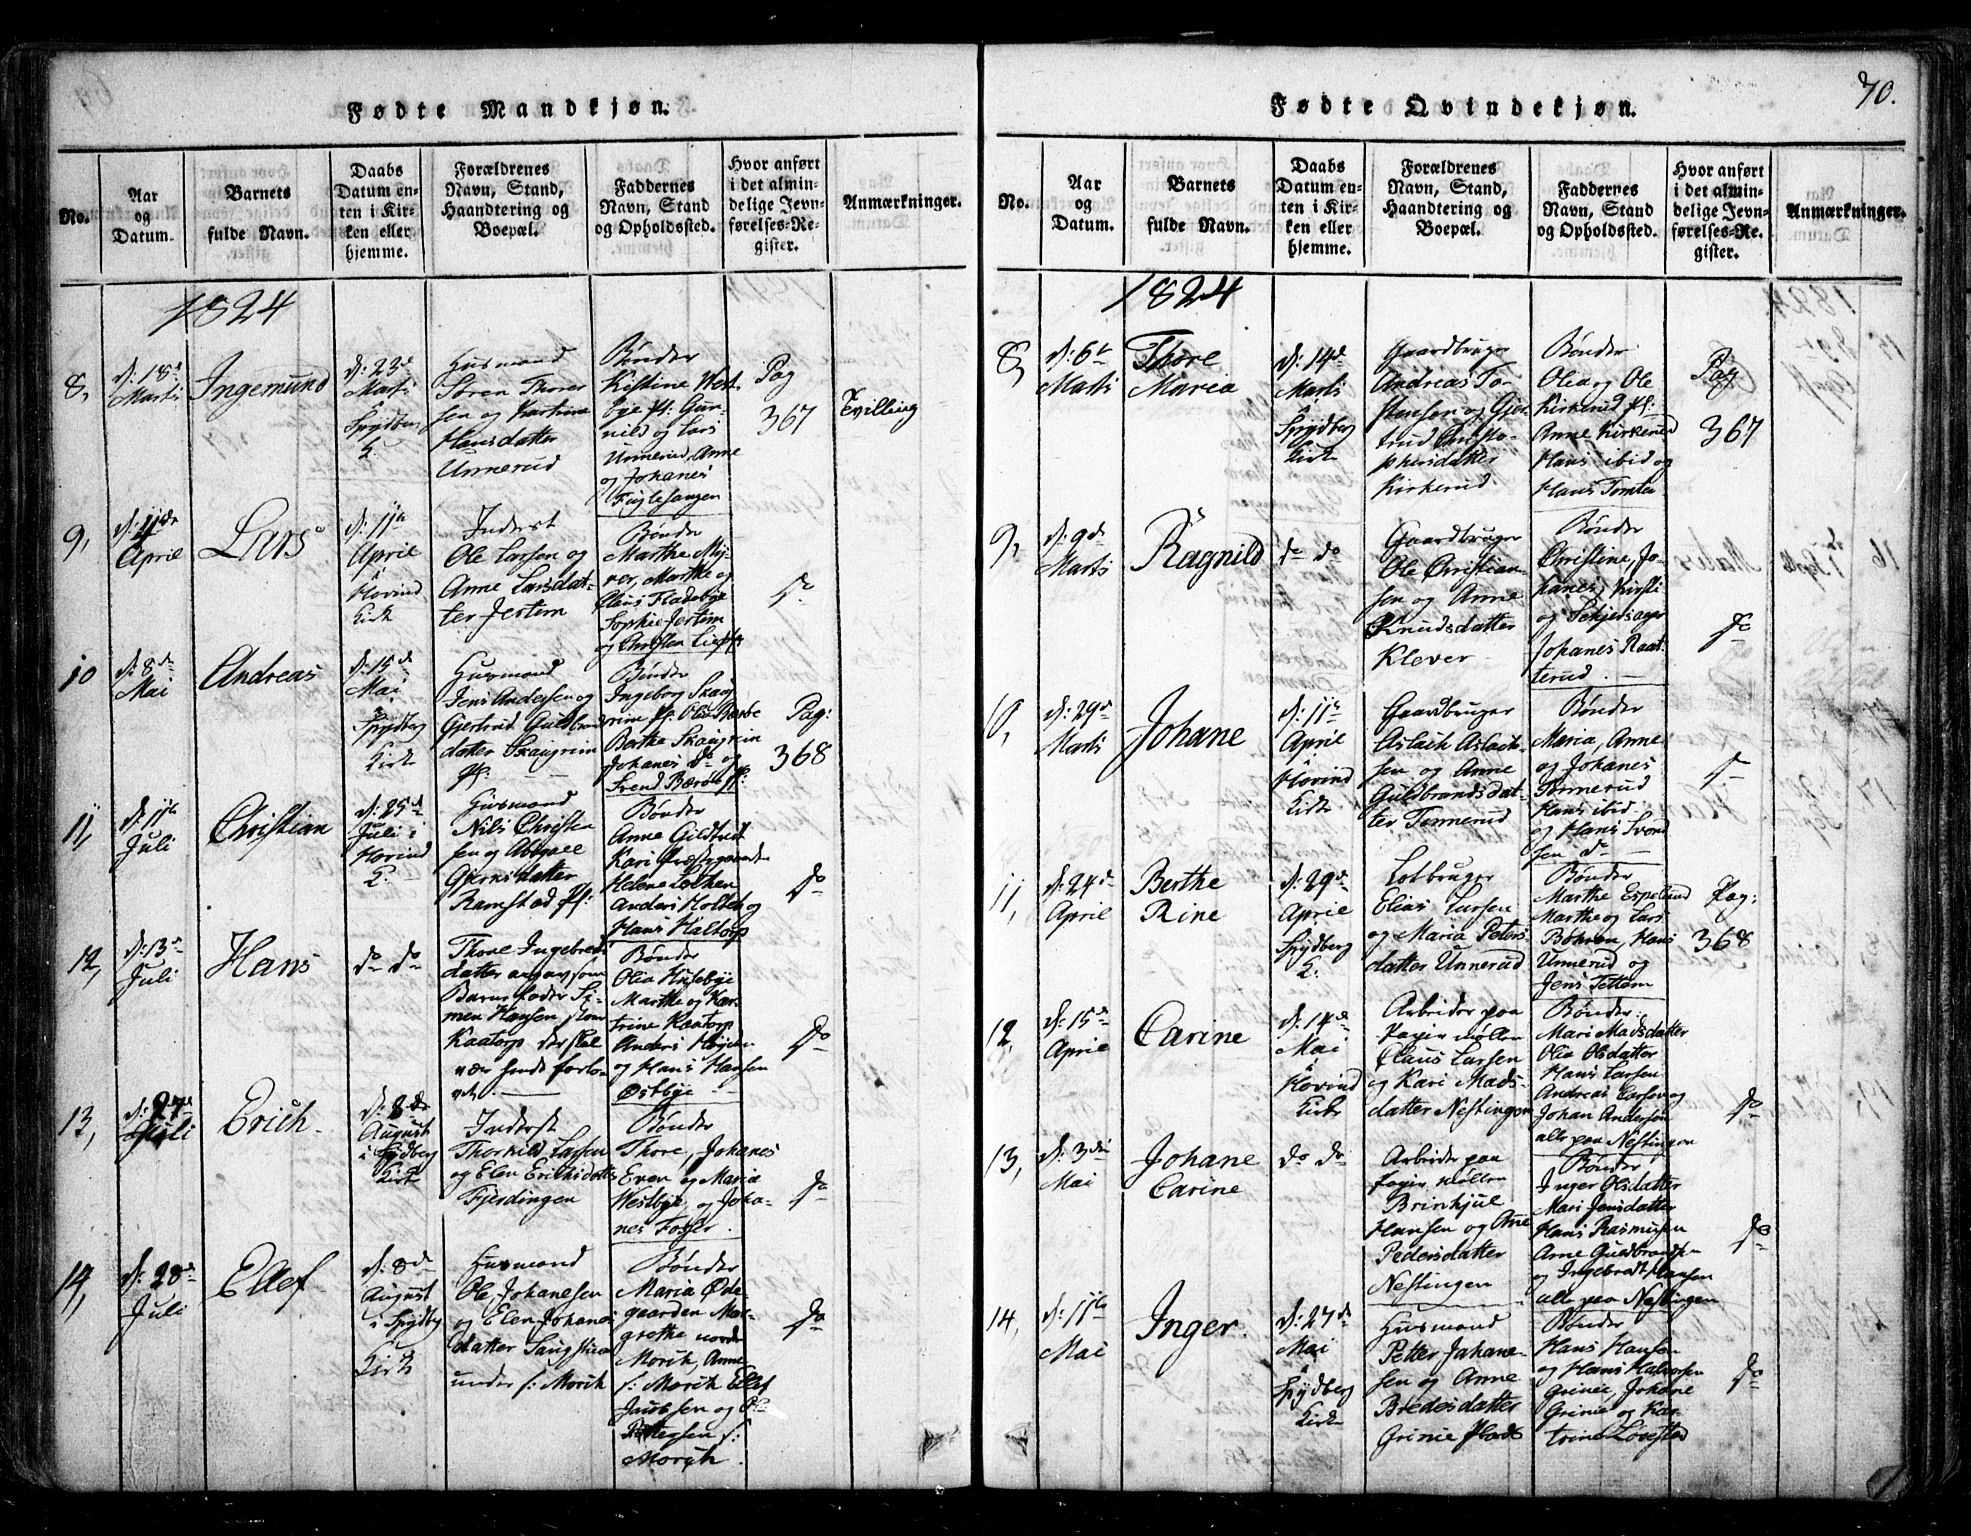 70.
Fødte Mandkjøn.
No.
Aar og Datum.
Barnets fulde Navn.
Daabs Datum enten i Kirken eller hjemme.
Forældrenes Navn, Stand, Haandtering og Boepæl.
Faddernes Navn, Stand og Opholdssted.
Hvor anført i det almindelige Jevnførelses-Register.
Anmærkninger.
1824
8,
d: 18d
Marti
Ingemund
d: 23d
Marti
i
Spydberg
K
Husmand
Søren Thores
sen og
Hansdatter
Unnerud
Bønder
Kistine West
bye pl: Gun
nild og Lars
Unnerud, Anne
og Johanes
Fuglesangen
Pag
367
Tvilling
9,
April
Lars
d: 11te
April
i
Hovind
Kirk
Inderst
Ole Larsen og
Anne Larsdat-
ter Jertem
Bønder
Marthe My-
rer, Marthe og
Fladebye
Sophie Jertem
og Christen
do
10
d: 8de
Mai
Andreas
d: 15de
Mai
i
Spydberg
Kirk
Husmand
Jens Andersen og
Gjertrud Guldbrand
datter Skaugrim
pl:
Bønder
Ingeborg Skaug
rim pl:
Berthe Skaugrim
Johanes do og
Svend
Pag:
368
11,
d: 11te
Juli
Christian
d: 25d
Juli i
Hovind
K:
Husmand
Nils Christen
sen og Abegael
datter
Ramstad pl:
Bønder
Anne
Kari
Helene
Anders Holter og
Hans Haltorp
do
12,
d: 13d
Juli
Hans
do do
Thore Ingebreds
datter angav som
Barnefader Si-
men Hansen
Kaatorp der skal
vær hende forlo-
vet.
Bønder
Olia Husebye
Marthe og Kat-
trine Kaatorp
Anders
og Hans Hansen
Østbye
do
13,
d: 27d
Juli
Erich
d: 8de
August
i Spydberg
Kirk
Inderst
Thorkild Larsen
og Elen Erichsdatter
Fjerdingen
Bønder
Thore, Johanes
Even og Maria
Westbye, og Joha-
nes Fosser
do
14,
d: 28d
Juli
Ellef
d: 8d
August
i Spydberg
Kirk
Husmand
Ole Johanesen
og Elen Johanes
datter
under s: Morik
Bønder
Maria Øde-
gaarden Mar-
grethe nordre
Morik, Anne
s: Morik Ellef
Jacobsen og Ole
Pettersen s:
Morik
do
Fødte Qvindekjøn.
No.
Aar og Datum.
Barnets fulde Navn.
Daabs Datum enten i Kirken eller hjemme.
Forældrenes Navn, Stand, Haandtering og Boepæl.
Faddernes Navn, Stand og Opholdssted.
Hvor anført i det almindelige Jevnførelses-Register.
Anmærkninger.
1824
8,
d: 6te
Marti
Thore
Maria
d: 14d
Marti
i
Spydberg
Kirk
Gaardbruger
Andreas To-
stensen og Gjer-
trud Christo-
phersdatter
Kirkerud
Bønder
Olea og Ole
Kirkerud pl:
Anne Kirkerud
Hans ibid og
Hans Tomter
Pag
367
9,
d: 9d
Marti
Ragnild
do do
Gaardbruger
Ole Christian-
sen og Anne
Knudsdatter
Klever
Bønder
Christine, Jo-
hanes, Kirsti
og
Johanes Raat-
terud
do
10,
d: 29d
Marti
Johane
d: 11te
April
i
Hovind
Kirk
Gaardbruger
Aslach Aslach-
sen og Anne
Guldbrandsdat-
ter Tennerud
Bønder
Maria, Anne
og Johanes
Tennerud
Hans ibid
og Hans
sen do
do
11,
d: 24d
April
Berthe
Rine
d: 29d
April
i
Spydberg
K:
Lotbruger
Elias Larsen
og Maria Peters-
datter Unnerud
Bønder
Marthe Espelund
Marthe og Lars
Hans
Unnerud og
Jens Tettem
Pag:
368
12,
d: 15d
April
Carine
d: 14d
Mai
i
Hovind
Kirke
Arbeider paa
Papirmøllen
Claus Larsen
og Kari Mads-
datter Nestingen
Bønder:
Mari Madsdatter
Olia Olsdatter
Hans Larsen
Andreas Larsen og
Johan Andersen
alle paa Nestingen
do
13,
d: 3die
Mai
Johane
Carine
do do
Arbeider paa
Brinkjul
Hansen og Ane
Pedersdatter
Nestingen
Bønder
Inger Olsdatter
Mari Jensdatter
Hans Rasmusen
Arne Guldbrandsen
og Ingebredt Hansen
alle paa Nestingen
do
14,
d: 11te
Mai
Inger.
d: 27de
Mai
i
Spydberg
Kirk
Husmand
Petter Johane-
sen og Anne
Bredesdatter
Grinie plads
Bønder
Hans Hansen
og Hans Halvorsen
Grinie, Johane
Grinie og Kat-
trine Løvestad
do